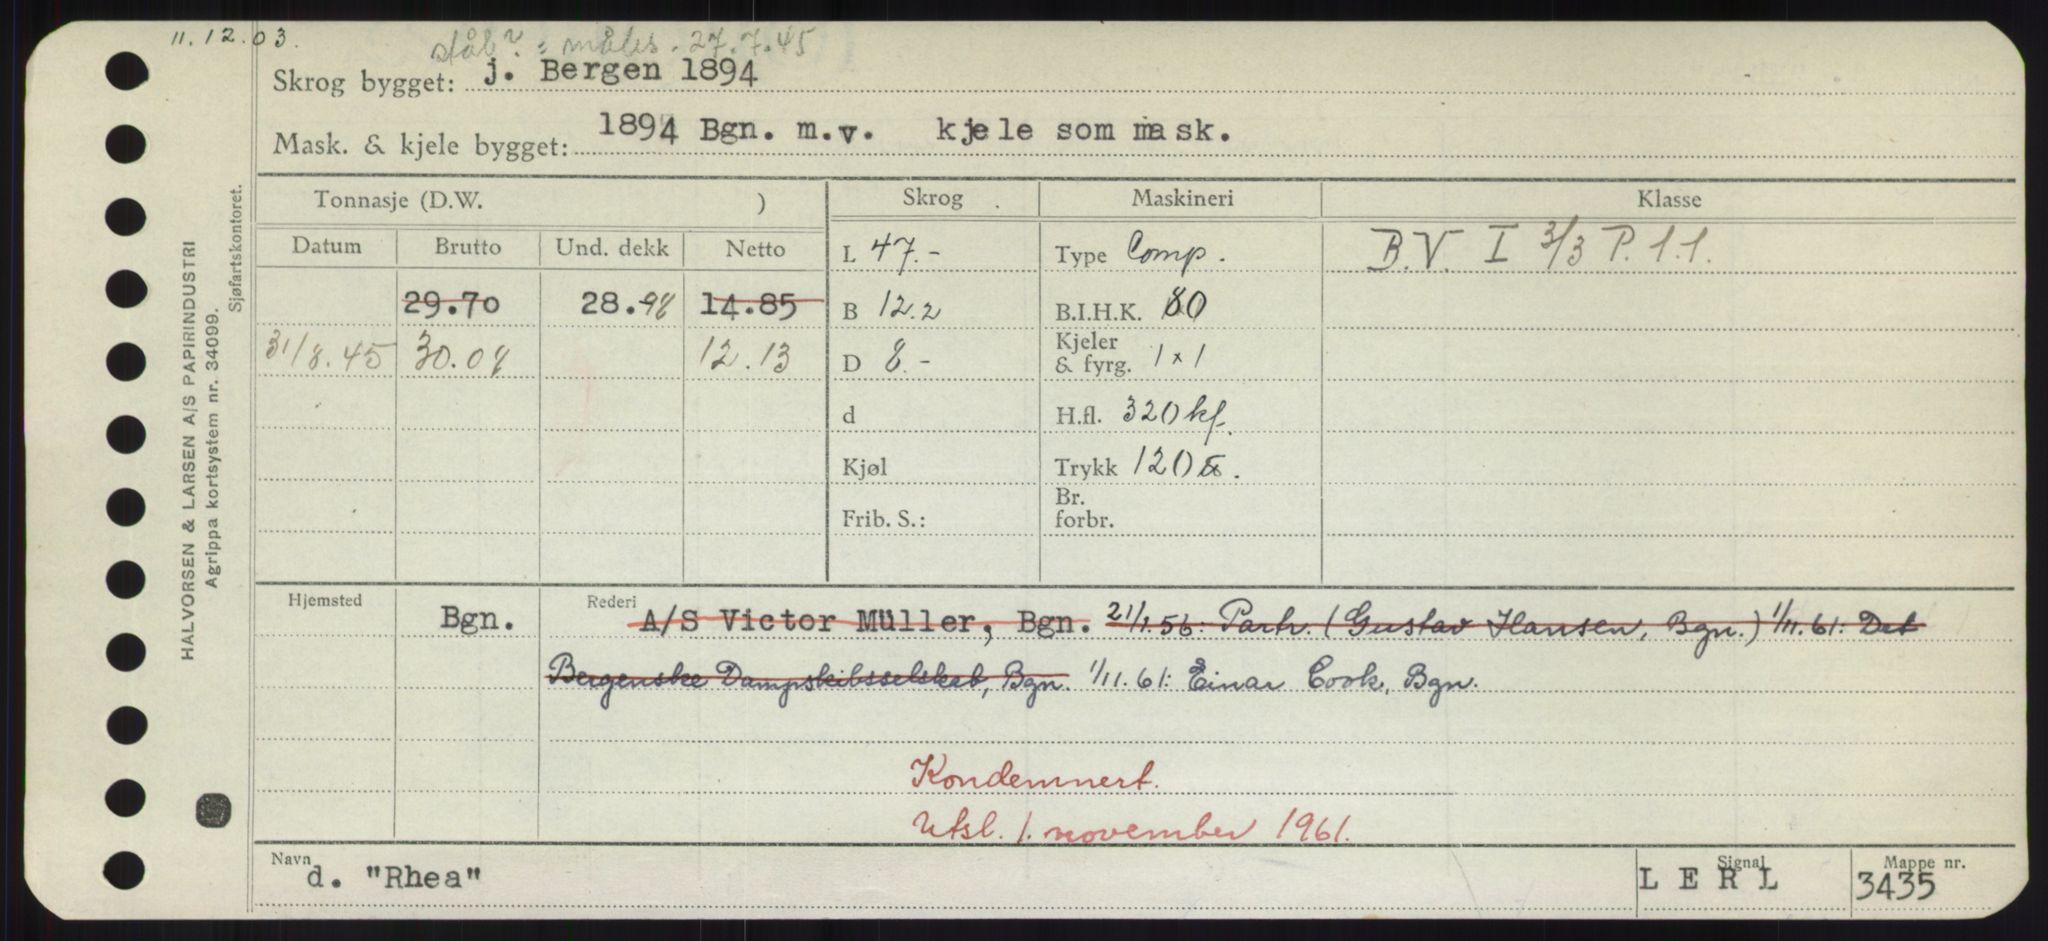 11.12.03.
stål? : måles. 27.7.45
Skrog bygget: j. Bergen 1894
Mask. & kjele bygget: 1894 Bgn. m.v. kjele som mask.
Tonnasje (D.W. ) Skrog Maskineri Klasse
Datum Brutto Und. dekk Netto L 47.- Type Comp. B.V. I 3/3 P. 1.1.
29.70 28.98 14.85 B 12.2 B.I.H.K. 80
31/8.45 30.08 12.13 D 8.- Kjeler & fyrg. 1 x 1
d H.fl. 320 kf.
Kjøl Trykk 120
Frib. S.: Br. forbr.
Hjemsted Bgn. Rederi A/S Victor Müller, Bgn. 21/1.56: Partr. (Gustav Hansen, Bgn.) 1/11.61: Det
Bergenske Dampskibsselskab, Bgn. 1/11.61: Einar Cook, Bgn.
Kondemnert.
Utsl. 1. november 1961.
Navn d. "Rhea" Signal L E R L Mappe nr. 3435
HALVORSEN & LARSEN A/S PAPIRINDUSTRI
Agrippa kortsystem nr. 34099.
Sjøfartskontoret.